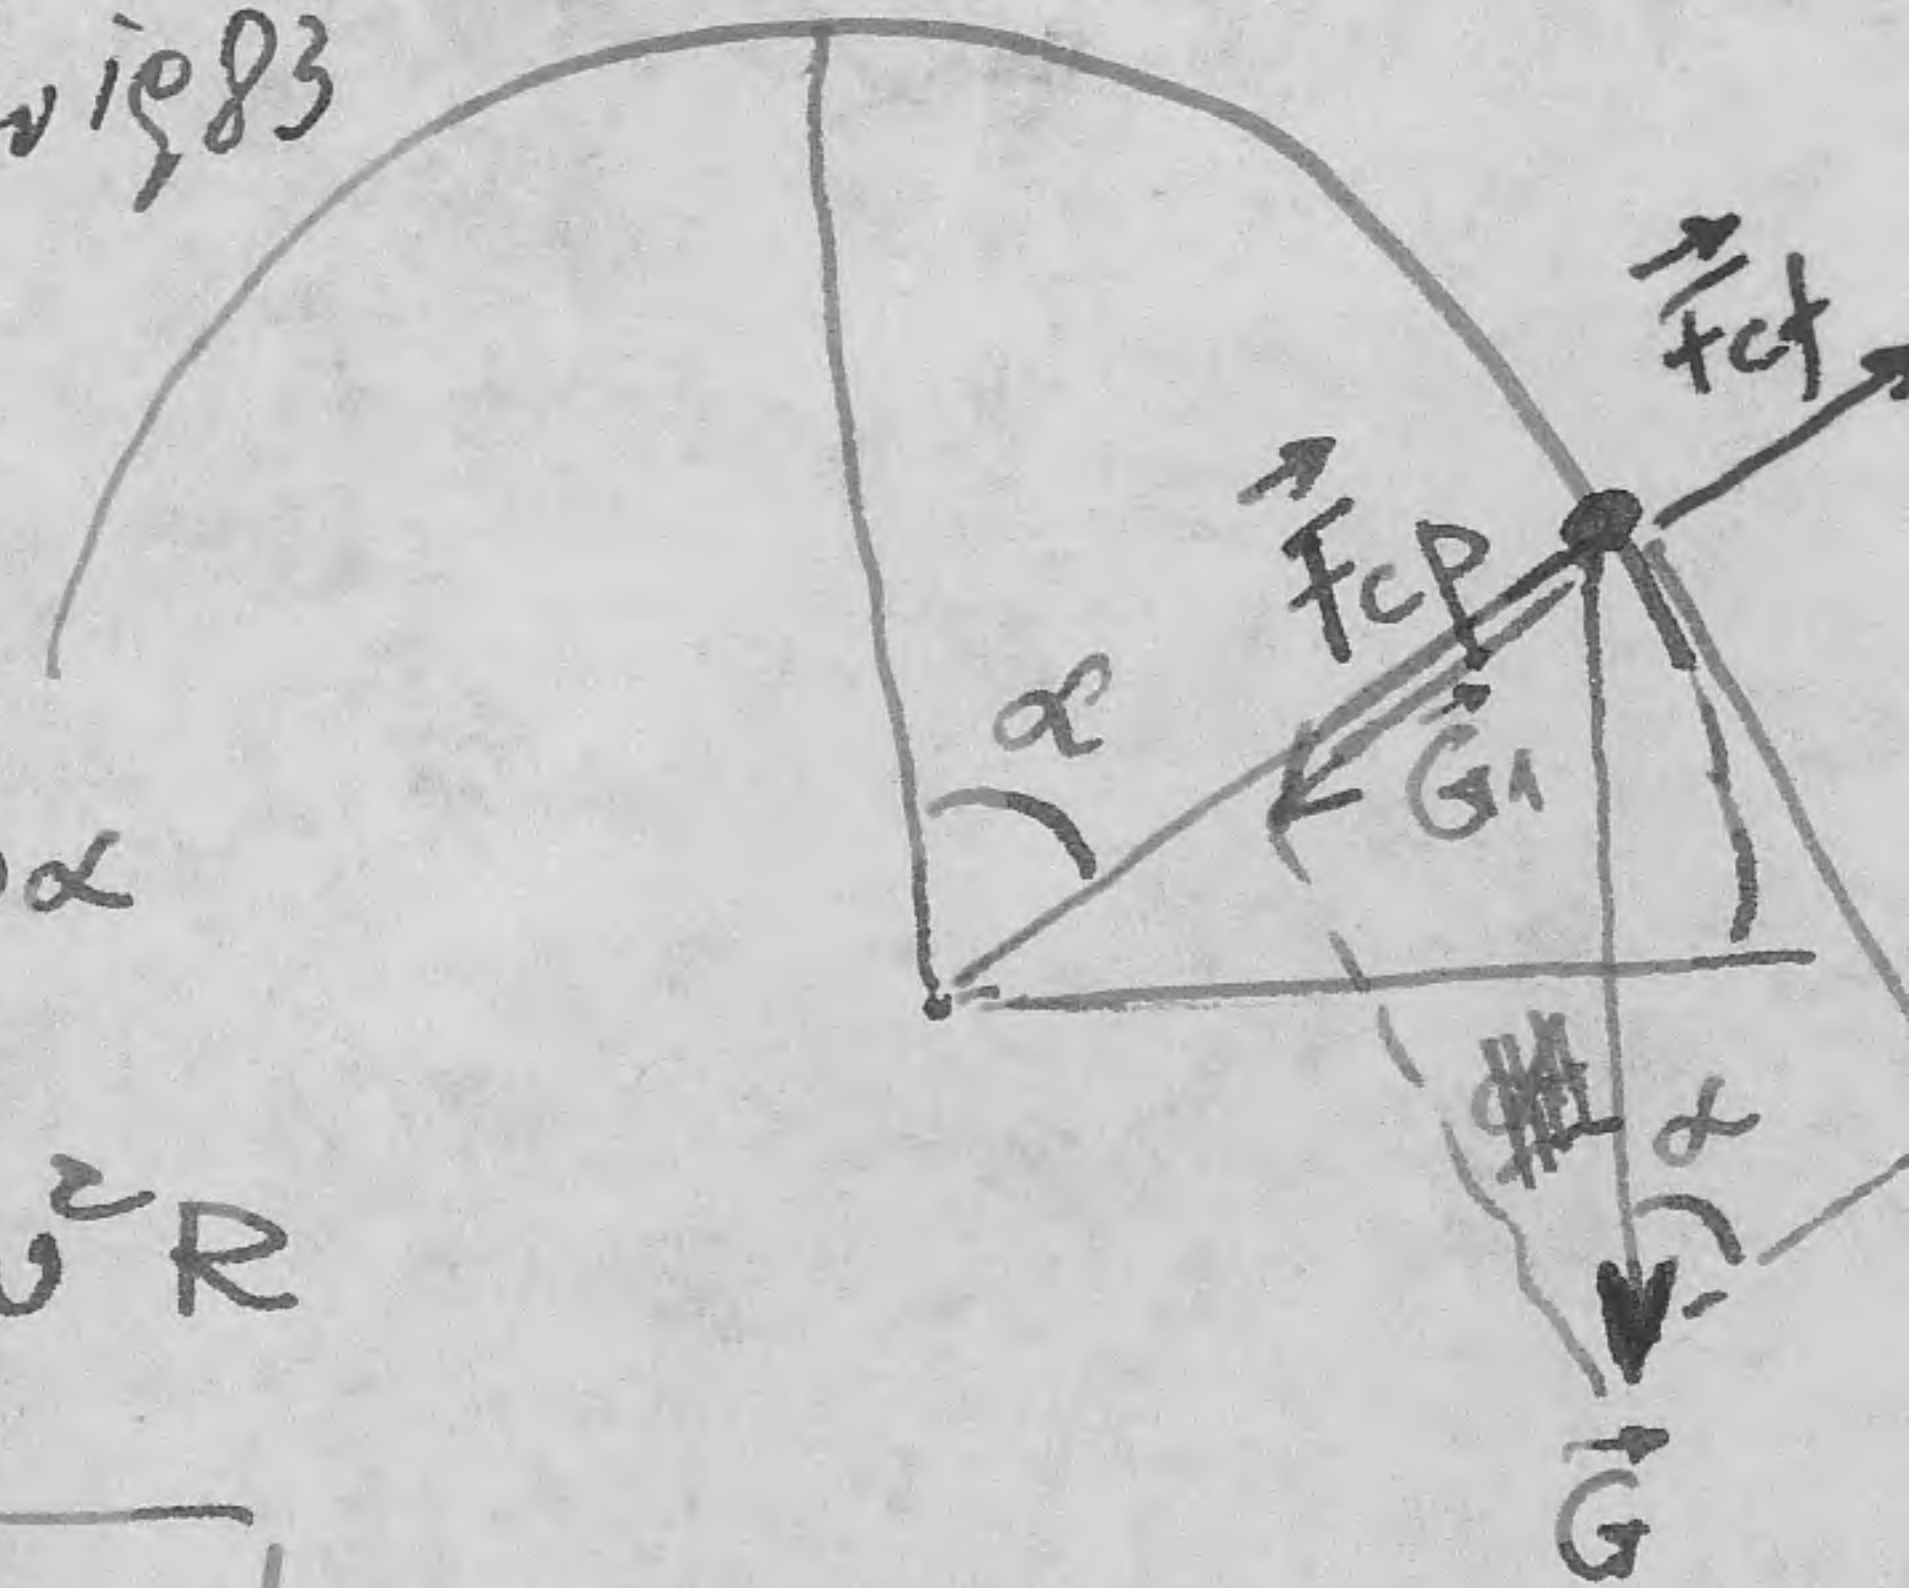 ig 83
F⃗ct
F⃗cp
α
G⃗1
α
α
ω²R
G⃗